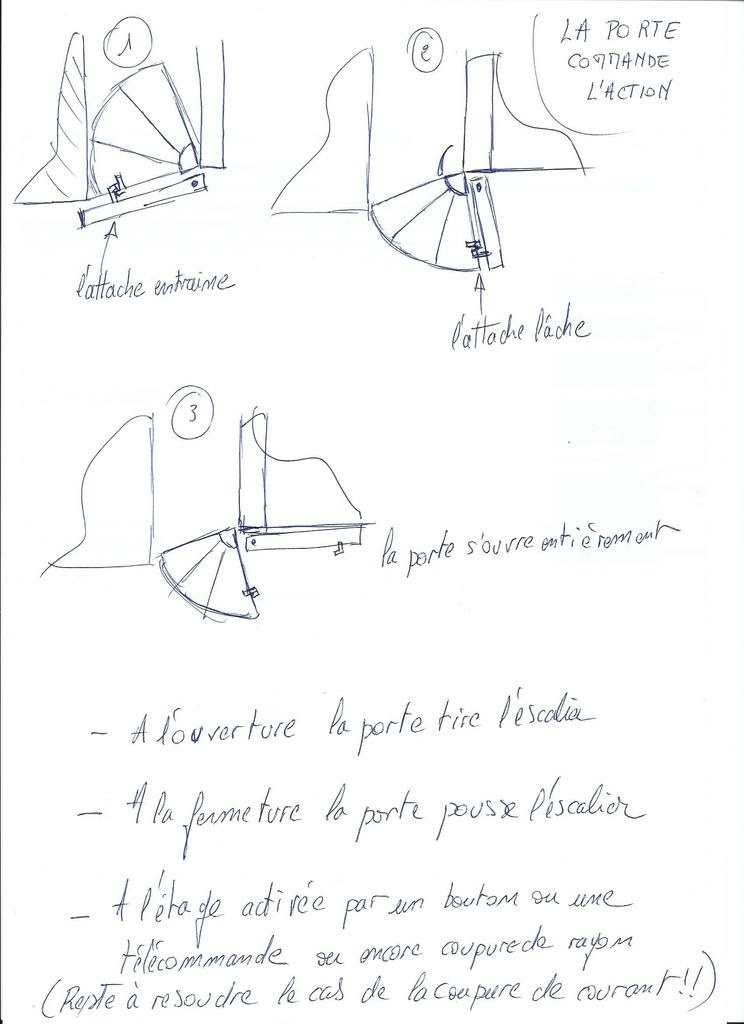 1
2
LA PORTE
COMMANDE
L'ACTION
l'attache entraine
l'attache lâche
3
la porte s'ouvre entièrement
- A l'ouverture la porte tire l'éscalier
- A la fermeture la porte pousse l'éscalier
- A l'étage activée par un bouton ou une
télécommande ou encore coupure de rayon
(Reste à resoudre le cas de la coupure de courant !!)